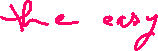 the easy